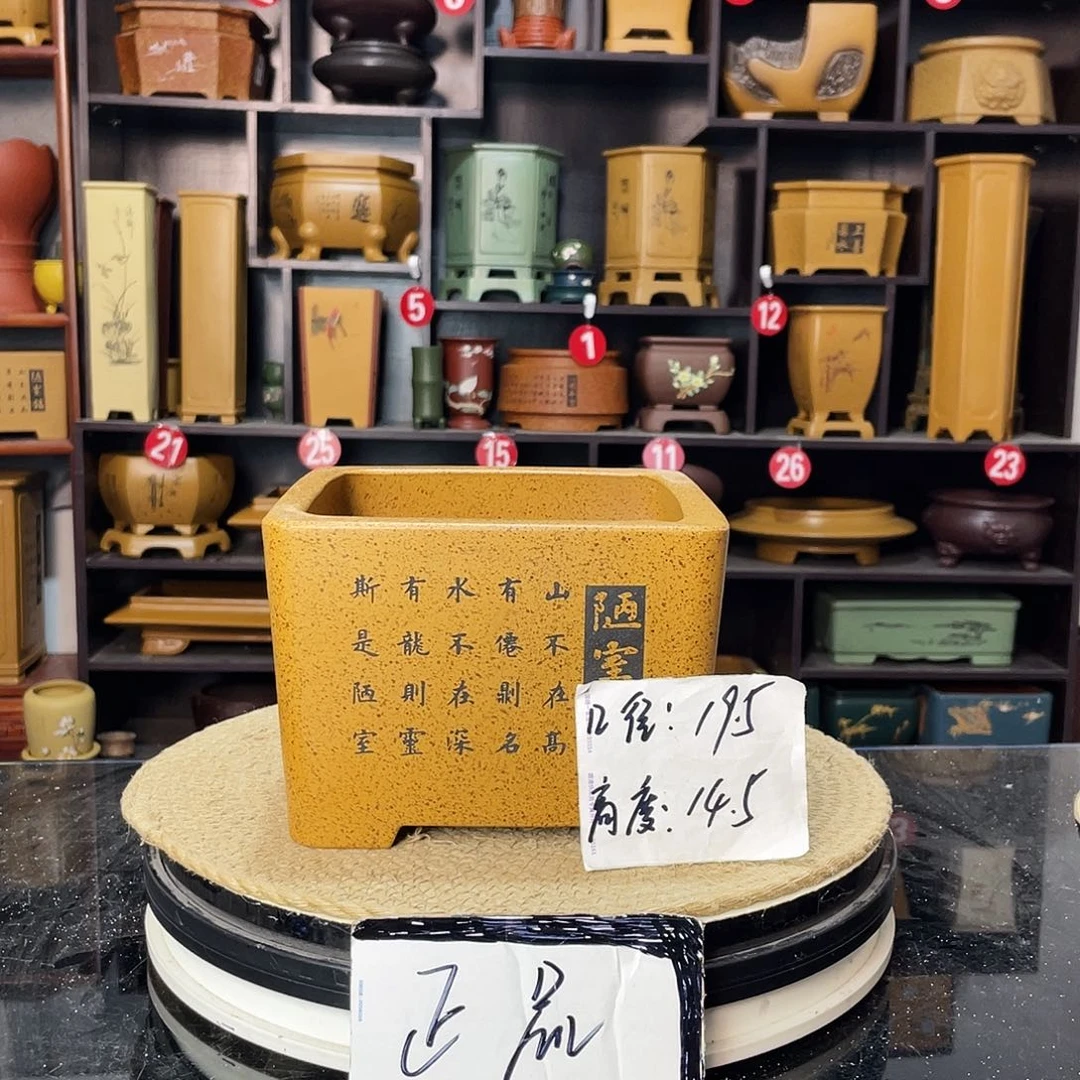 5
1
12
21
25
15
11
26
23
陋室
山不在高
有僊則名
水不在深
有龍則靈
斯是陋室
口径：19.5
高度：14.5
正品